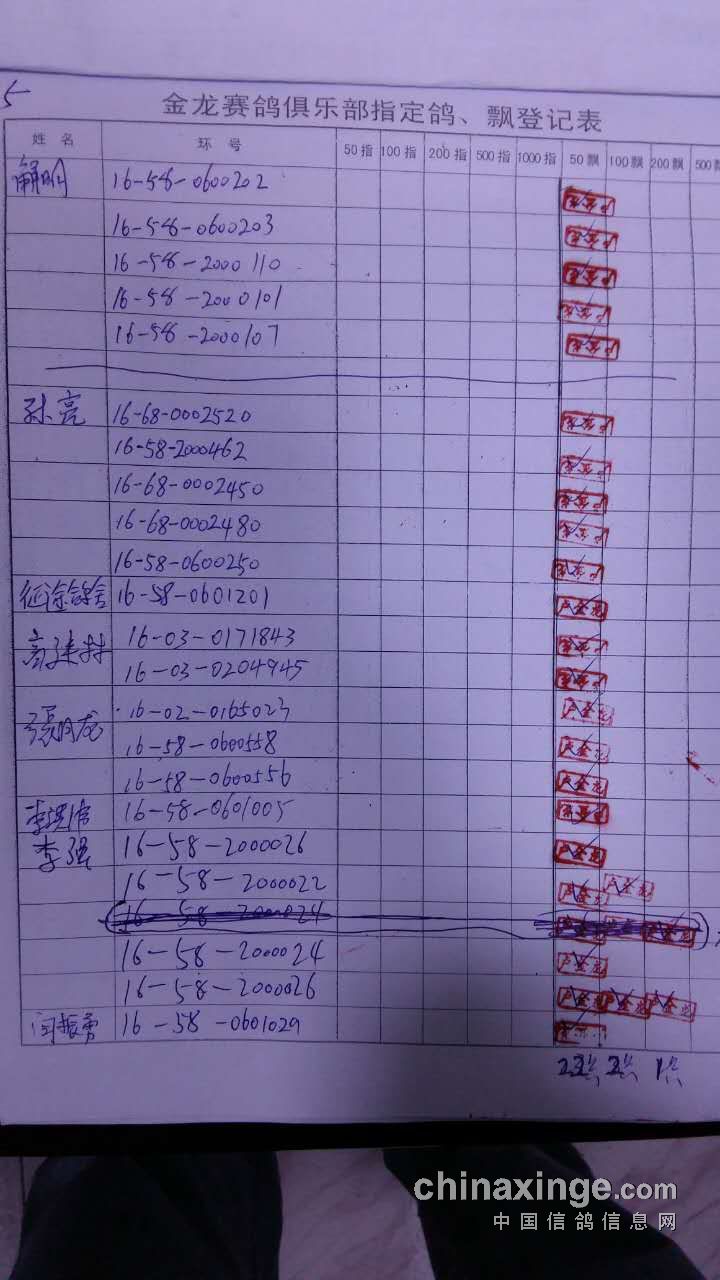 5
金龙赛鸽俱乐部指定鸽、飘登记表
姓 名 环 号 50指 100指 200指 500指 1000指 50飘 100飘 200飘 500飘
解明 16-58-0600202
16-58-0600203
16-58-2000110
16-58-2000101
16-58-2000107
孙亮 16-68-0002520
16-58-2000462
16-68-0002450
16-68-0002480
16-58-0600250
征途鸽舍 16-58-0601201
16-03-0171843
16-03-0204945
張明龙 16-02-0165023
16-58-0600558
16-58-0600556
16-58-0601005
李强 16-58-2000026
16-58-2000022
16-58-2000024
16-58-2000024
16-58-2000026
闫振勇 16-58-0601029
chinaxinge.com
中国信鸽信息网